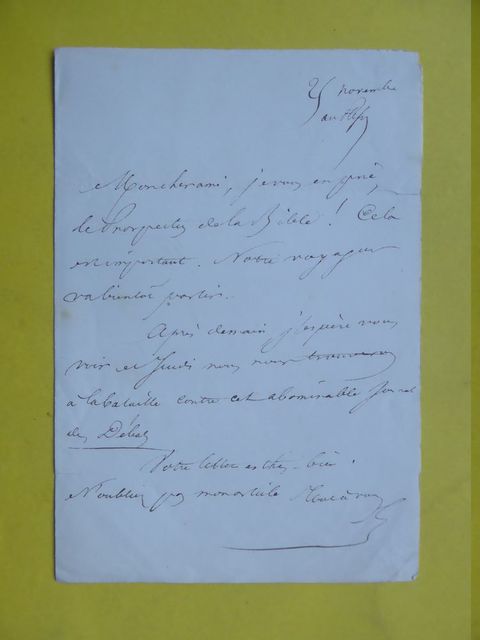 25 novembre
Mon cher ami, je vous en prie,
le Prospectus de la Bible ! Cela
est important. Notre voyageur
va bientôt partir.
Après demain, j'espère vous
voir et Jeudi nous nous trouverons
à la bataille contre cet abominable Journal
des Débats
Votre lettre est très bien.
N'oubliez pas mon article Tout à vous